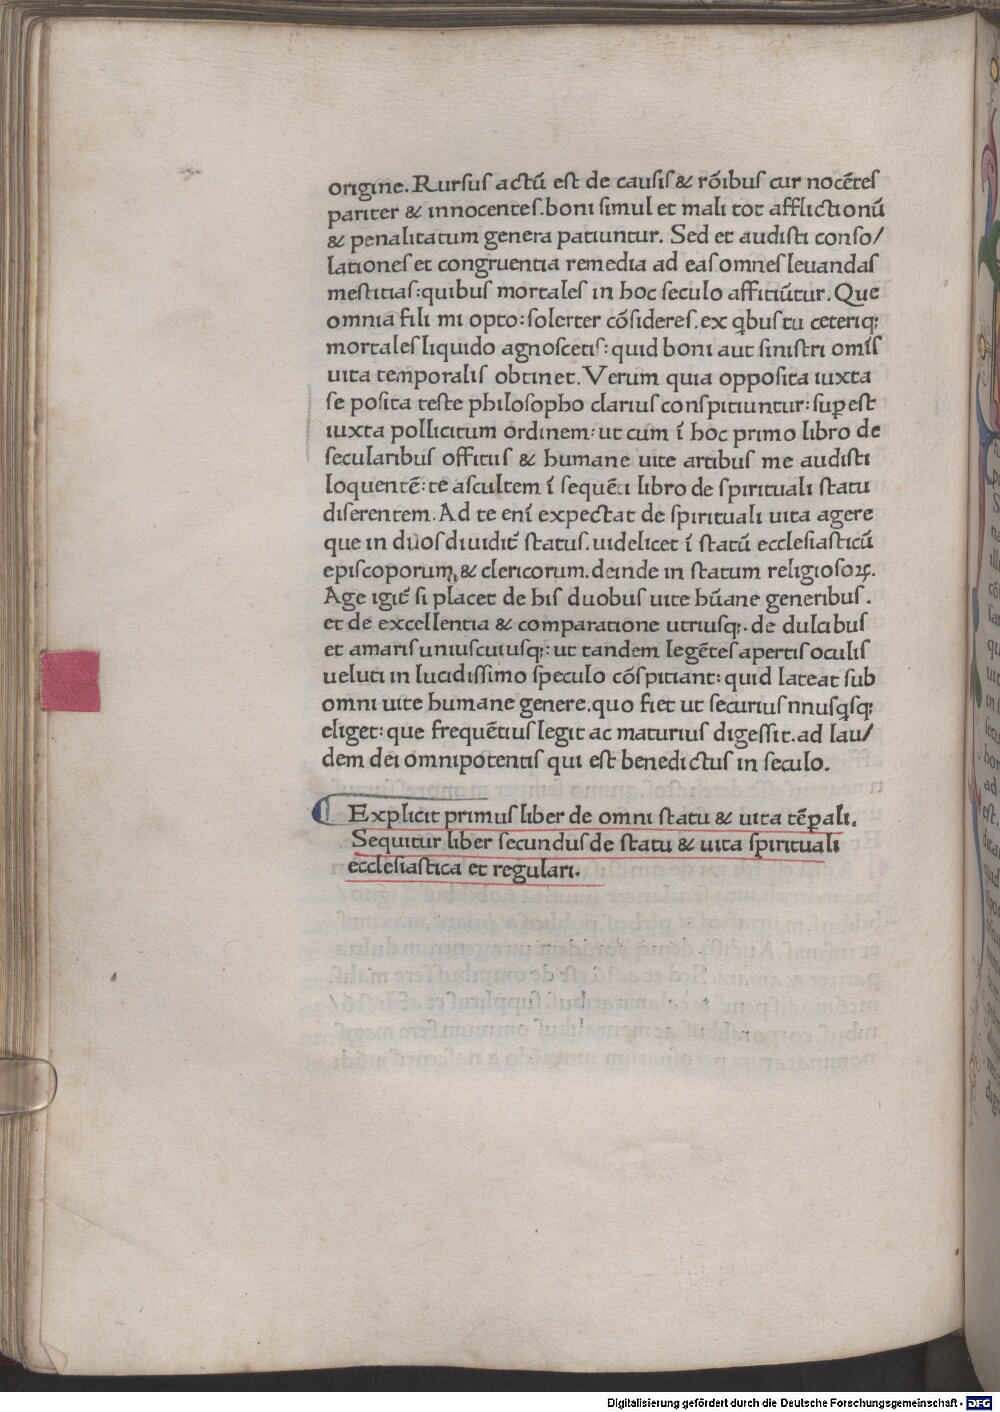 origine. Rursus actū est de causis & rōibus cur nocētes
pariter & innocentes. boni simul et mali tot afflictionū
& penalitatum genera patiuntur. Sed et audisti conso/
lationes et congruentia remedia ad eas omnes leuandas
mestitias: quibus mortales in hoc seculo affitiūtur. Que
omnia fili mi opto: solerter cōsideres. ex qbus tu ceteriq;
mortales liquido agnoscetis: quid boni aut sinistri omīs
uita temporalis obtinet. Verum quia opposita iuxta
se posita teste philosopho clarius conspitiuntur: supest
iuxta pollicitum ordinem: ut cum ī hoc primo libro de
secularibus offitiis & humane uite artibus me audisti
loquentē: te ascultem ī sequēti libro de spirituali statu
diserentem. Ad te enī expectat de spirituali uita agere
que in duos diuidit̄ status. uidelicet ī statū ecclesiasticū
episcoporum, & clericorum. deinde in statum religiosoꝝ.
Age igit̄ si placet de his duobus uite hūane generibus.
et de excellentia & comparatione utriusq;. de dulcibus
et amaris uniuscuiusq;: ut tandem legētes apertis oculis
ueluti in lucidissimo speculo cōspitiant: quid lateat sub
omni uite humane genere. quo fiet ut securius
eliget: que frequētius legit ac maturius digessit. ad lau/
dem dei omnipotentis qui est benedictus in seculo.
Explicit primus liber de omni statu & uita tēꝑali.
Sequitur liber secundus de statu & uita spirituali
ecclesiastica et regulari.
Digitalisierung gefördert durch die Deutsche Forschungsgemeinschaft - DFG